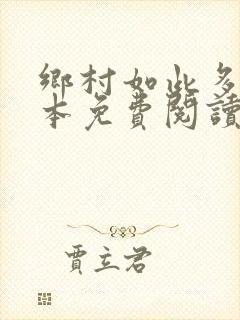 鄉村如此多
本免費閱讀
賈立君